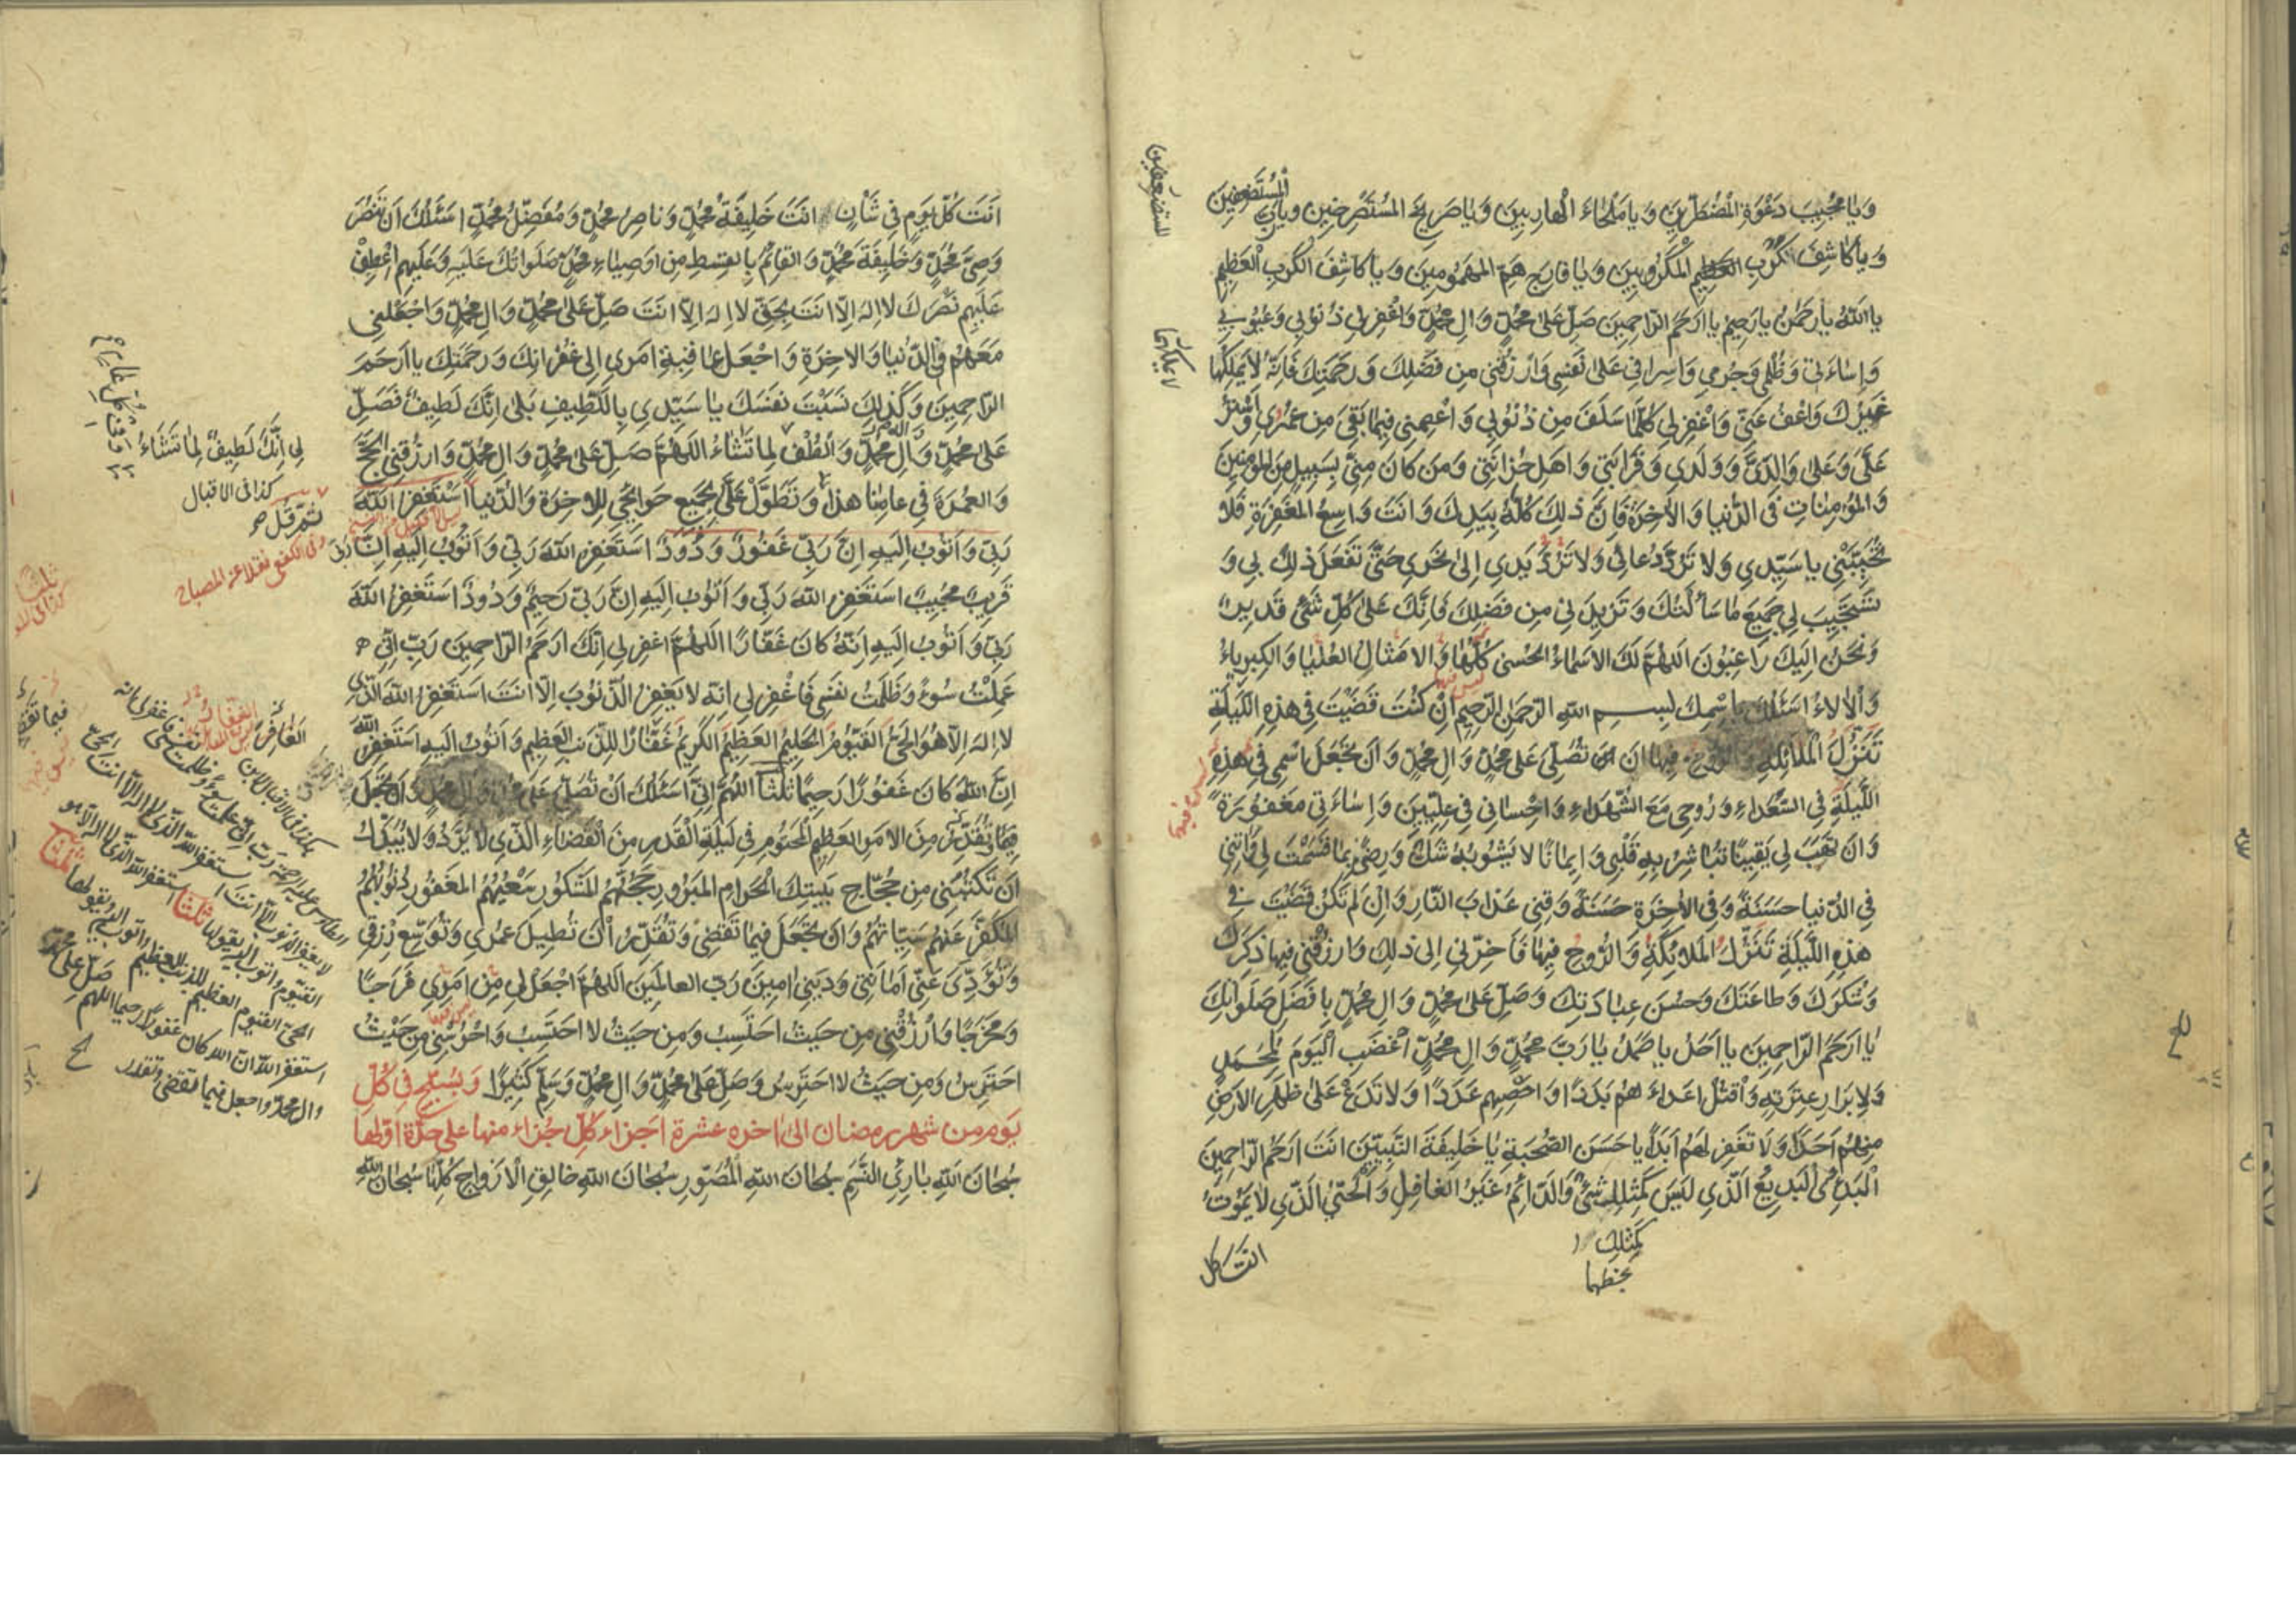 وَيا مُجِيبَ دَعْوَةِ الْمُضْطَرِّينَ وَيا مَلْجَاءَ الْهارِبِينَ وَيا صَرِيخَ المُسْتَصْرِخِينَ ويا رَبَّ الْمُسْتَضْعَفِينَ
وَيا كاشِفَ كُرَبِ الْمَكْرُوبِينَ وَيا فارِجَ هَمِّ المَهْمُومِينَ وَيا كاشِفَ الْكَرْبِ الْعَظِيمِ
يا اَللهُ يا رَحْمٰنُ يا رَحِيمُ يا اَرْحَمَ الرّاحِمِينَ صَلِّ عَلىٰ مُحَمَّدٍ وَالِ مُحَمَّدٍ وَاغْفِرْ لِي ذُنُوبِي وَعُيُوبِي
وَاِسٰاءَتِي وَظُلْمِي وَجُرْمِي وَاِسْرافِي عَلىٰ نَفْسِي وَارْزُقْنِي مِن فَضْلِكَ وَرَحْمَتِكَ فَاِنَّهُ لا يَمْلِكُها
غَيْرُكَ وَاعْفُ عَنِّي وَاغْفِرْ لِي كُلَّمٰا سَلَفَ مِن ذُنُوبِي وَاعْصِمْنِي فِيمٰا بَقِيَ مِن عُمْرِي وَاسْتُرْ
عَلَيَّ وَعَلىٰ وَالِدَيَّ وَوَلَدِي وَقَرابَتِي وَاَهْلِ حُزانَتِي وَمَن كانَ مِنِّي بِسَبِيلٍ مِنَ المُؤْمِنِينَ
وَالمُؤْمِنٰاتِ فِي الدُّنْيا وَالاٰخِرَةِ فَاِنَّ ذٰلِكَ كُلَّهُ بِيَدِكَ وَاَنْتَ وَاسِعُ المَغْفِرَةِ فَلا
تُخَيِّبْنِي يا سَيِّدِي وَلا تَرُدَّ دُعائِي وَلا تَرُدَّ يَدِي اِلىٰ نَحْرِي حَتّىٰ تَفْعَلَ ذٰلِكَ بِي وَ
تَسْتَجِيبَ لِي جَمِيعَ مٰا سَاَلْتُكَ وَتَزِيدَنِي مِن فَضْلِكَ فَاِنَّكَ عَلىٰ كُلِّ شَيْءٍ قَدِيرٌ
وَنَحْنُ اِلَيْكَ رَاغِبُونَ اَللّهُمَّ لَكَ الاَسْمٰاءُ الحُسْنىٰ كُلُّها وَالاَمْثالُ العُلْيا وَالكِبْرِياءُ
وَالاٰلاءُ اَسْئَلُكَ بِاسْمِكَ بِسْمِ اللهِ الرَّحْمٰنِ الرَّحِيمِ اِنْ كُنْتَ قَضَيْتَ فِي هٰذِهِ اللَّيْلَةِ
تَنَزُّلَ الْمَلائِكَةِ وَالرُّوحِ فِيها اَن تُصَلِّيَ عَلىٰ مُحَمَّدٍ وَالِ مُحَمَّدٍ وَاَن تَجْعَلَ اسْمِي فِي هٰذِهِ
اللَّيْلَةِ فِي السُّعَداءِ وَرُوحِي مَعَ الشُّهَداءِ وَاِحْسانِي فِي عِلِّيِّينَ وَاِسٰاءَتِي مَغْفُورَةً
وَاَن تَهَبَ لِي يَقِينًا تُبٰاشِرُ بِهِ قَلْبِي وَاِيمانًا لا يَشُوبُهُ شَكٌّ وَرِضًى بِمٰا قَسَمْتَ لِي وَاٰتِنِي
فِي الدُّنْيا حَسَنَةً وَفِي الاٰخِرَةِ حَسَنَةً وَقِنِي عَذابَ النّارِ وَاِنْ لَمْ تَكُنْ قَضَيْتَ فِي
هٰذِهِ اللَّيْلَةِ تَنَزُّلَ المَلائِكَةِ وَالرُّوحِ فِيهٰا فَاَخِّرْنِي اِلىٰ ذٰلِكَ وَارْزُقْنِي فِيها ذِكْرَكَ
وَشُكْرَكَ وَطاعَتَكَ وَحُسْنَ عِبادَتِكَ وَصَلِّ عَلىٰ مُحَمَّدٍ وَالِ مُحَمَّدٍ بِاَفْضَلِ صَلَواتِكَ
يٰا اَرْحَمَ الرّاحِمِينَ يا اَحَدُ يا صَمَدُ يٰا رَبَّ مُحَمَّدٍ وَالِ مُحَمَّدٍ اغْضَبِ الْيَوْمَ لِمُحَمَّدٍ
وَلِاَبْرارِ عِتْرَتِهِ وَاقْتُلْ اَعْداءَهُم بَدَدًا وَاَحْصِهِم عَدَدًا وَلا تَدَعْ عَلىٰ ظَهْرِ الاَرْضِ
مِنْهُمْ اَحَدًا وَلا تَغْفِرْ لَهُم اَبَدًا يا حَسَنَ الصُّحْبَةِ يٰا خَلِيفَةَ النَّبِيِّينَ اَنْتَ اَرْحَمُ الرّاحِمِينَ
الْبَدِيءُ الْبَدِيعُ الَّذِي لَيْسَ كَمِثْلِكَ شَيْءٌ وَالدّائِمُ غَيْرُ الغافِلِ وَالْحَيُّ الَّذِي لا يَمُوتُ
كَمِثْلِكَ
بخطهما
انت كل
للمستضعفين
لا يملكها
ليس فيهما
اَنْتَ كُلَّ يَوْمٍ فِي شَأْنٍ اَنْتَ خَلِيفَةُ مُحَمَّدٍ وَناصِرُ مُحَمَّدٍ وَمُفَضِّلُ مُحَمَّدٍ اَسْئَلُكَ اَنْ تَنْصُرَ
وَصِيَّ مُحَمَّدٍ وَخَلِيفَةَ مُحَمَّدٍ وَالقائِمَ بِالقِسْطِ مِن اَوْصِيٰاءِ مُحَمَّدٍ صَلَواتُكَ عَلَيْهِ وَعَلَيْهِم اعْطِفْ
عَلَيْهِم نَصْرَكَ لا اِلهَ اِلّا اَنْتَ بِحَقِّ لا اِلهَ اِلّا اَنْتَ صَلِّ عَلىٰ مُحَمَّدٍ وَالِ مُحَمَّدٍ وَاجْعَلْنِي
مَعَهُم فِي الدُّنْيا وَالاٰخِرَةِ وَاجْعَل عاقِبَةَ اَمْرِي اِلىٰ غُفْرانِكَ وَرَحْمَتِكَ يا اَرْحَمَ
الرّاحِمِينَ وَكَذٰلِكَ نَسَبْتَ نَفْسَكَ يا سَيِّدِي بِاللَّطِيفِ بَلىٰ اِنَّكَ لَطِيفٌ فَصَلِّ
عَلىٰ مُحَمَّدٍ وَالِ مُحَمَّدٍ وَالْطُفْ لِما تَشٰاءُ اَللّهُمَّ صَلِّ عَلىٰ مُحَمَّدٍ وَالِ مُحَمَّدٍ وَارْزُقْنِي الْحَجَّ
وَالعُمْرَةَ فِي عامِنا هٰذا وَتَطَوَّلْ عَلَيَّ بِجَمِيعِ حَوائِجِي لِلاٰخِرَةِ وَالدُّنْيا اَسْتَغْفِرُ اللهَ
رَبِّي وَاَتُوبُ اِلَيْهِ اِنَّ رَبِّي غَفُورٌ وَدُودٌ اَسْتَغْفِرُ اللهَ رَبِّي وَاَتُوبُ اِلَيْهِ اِنَّ رَبِّي
قَرِيبٌ مُجِيبٌ اَسْتَغْفِرُ اللهَ رَبِّي وَاَتُوبُ اِلَيْهِ اِنَّ رَبِّي رَحِيمٌ وَدُودٌ اَسْتَغْفِرُ اللهَ
رَبِّي وَاَتُوبُ اِلَيْهِ اِنَّهُ كانَ غَفّارًا اَللّهُمَّ اغْفِرْ لِي اِنَّكَ اَرْحَمُ الرّاحِمِينَ رَبِّ اِنِّي
عَمِلْتُ سُوءً وَظَلَمْتُ نَفْسِي فَاغْفِرْ لِي اِنَّهُ لا يَغْفِرُ الذُّنُوبَ اِلّا اَنْتَ اَسْتَغْفِرُ اللهَ الَّذِي
لا اِلهَ اِلّا هُوَ الْحَيُّ القَيُّومُ الحَلِيمُ العَظِيمُ الكَرِيمُ غَفّارًا لِلذَّنْبِ العَظِيمِ وَاَتُوبُ اِلَيْهِ اَسْتَغْفِرُ اللهَ
اِنَّ اللهَ كانَ غَفُورًا رَحِيمًا ثَلٰثًا اَللّهُمَّ اِنِّي اَسْئَلُكَ اَنْ تُصَلِّيَ عَلىٰ مُحَمَّدٍ وَالِ مُحَمَّدٍ وَاَنْ تَجْعَلَ
فِيمٰا تُقَدِّرُ مِنَ الاَمْرِ العَظِيمِ الْمَحْتُومِ فِي لَيْلَةِ الْقَدْرِ مِنَ الْقَضٰاءِ الَّذِي لا يُرَدُّ وَلا يُبَدَّلُ
اَنْ تَكْتُبَنِي مِن حُجّاجِ بَيْتِكَ الْحَرامِ المَبْرُورِ حَجُّهُمُ الْمَشْكُورِ سَعْيُهُمُ المَغْفُورِ ذُنُوبُهُمُ
المُكَفَّرِ عَنْهُم سَيِّئاتُهُم وَاَنْ تَجْعَلَ فِيمٰا تَقْضِي وَتُقَدِّرُ اَنْ تُطِيلَ عُمْرِي وَتُوَسِّعَ رِزْقِي
وَتُؤَدِّيَ عَنِّي اَمانَتِي وَدَيْنِي اٰمِينَ رَبَّ العالَمِينَ اَللّهُمَّ اجْعَلْ لِي مِن اَمْرِي فَرَجًا
وَمَخْرَجًا وَارْزُقْنِي مِن حَيْثُ اَحْتَسِبُ وَمِن حَيْثُ لا اَحْتَسِبُ وَاحْرُسْنِي مِن حَيْثُ
اَحْتَرِسُ وَمِن حَيْثُ لا اَحْتَرِسُ وَصَلِّ عَلىٰ مُحَمَّدٍ وَالِ مُحَمَّدٍ وَسَلِّم كَثِيرًا وَيُسَبِّحُ فِي كُلِّ
يَوْمٍ مِن شهر رمضان الىٰ اخره عشرة اجزاء كلّ جزاء منها على حِدَةٍ اوّلها
سُبْحانَ اللهِ بارِئِ النَّسَمِ سُبْحانَ اللهِ الْمُصَوِّرِ سُبْحانَ اللهِ خالِقِ الْاَزْواجِ كُلِّها سُبْحانَ اللهِ
لِي اِنَّكَ لَطِيفٌ لِمٰا تَشٰاءُ
كذا فى الاقبال
ثمّ قل
وفى الكفعمى نقلا عن المصباح
ثلثا
لا يغفر الذنوب الّا انت
استغفر الله الّذى لا اله الّا هو
الحىّ القيّوم العظيم
استغفر الله انّ الله كان غفورًا رحيما اللهم صلّ على محمّد
وال محمّد واجعل فيما تقضى وتقدر